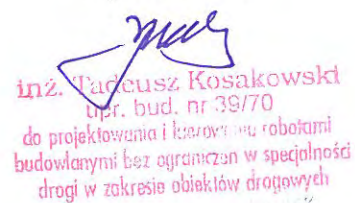 inż. Tadeusz Kosakowski
upr. bud. nr 39/70
do projektowania i kierowania robotami
budowlanymi bez ograniczen w specjalności
drogi w zakresie obiektów drogowych